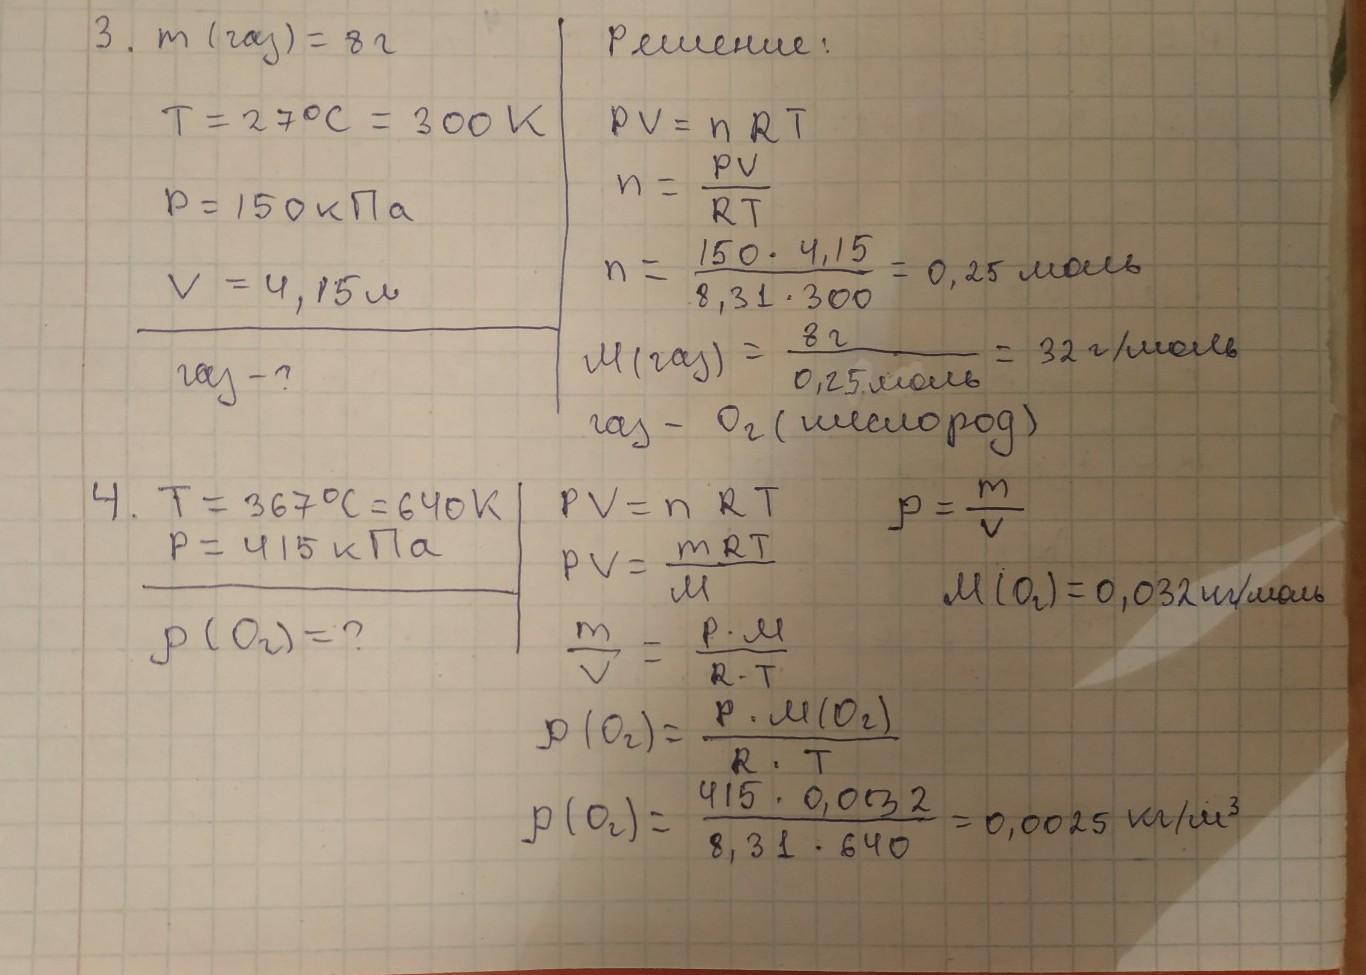 3. m (газ) = 8г
T = 27°C = 300 K
P = 150 кПа
V = 4,15 л
газ - ?
Решение:
PV = n R T
n = PV / RT
n = 150 · 4,15 / 8,31 · 300 = 0,25 моль
M(газ) = 8г / 0,25 моль = 32 г/моль
газ - O₂ (кислород)
4. T = 367°C = 640 K
P = 415 кПа
ρ (O₂) = ?
PV = n R T
ρ = m / V
PV = m R T / M
M (O₂) = 0,032 кг/моль
m / V = P · M / R · T
ρ (O₂) = P · M(O₂) / R · T
ρ (O₂) = 415 · 0,032 / 8,31 · 640 = 0,0025 кг/м³